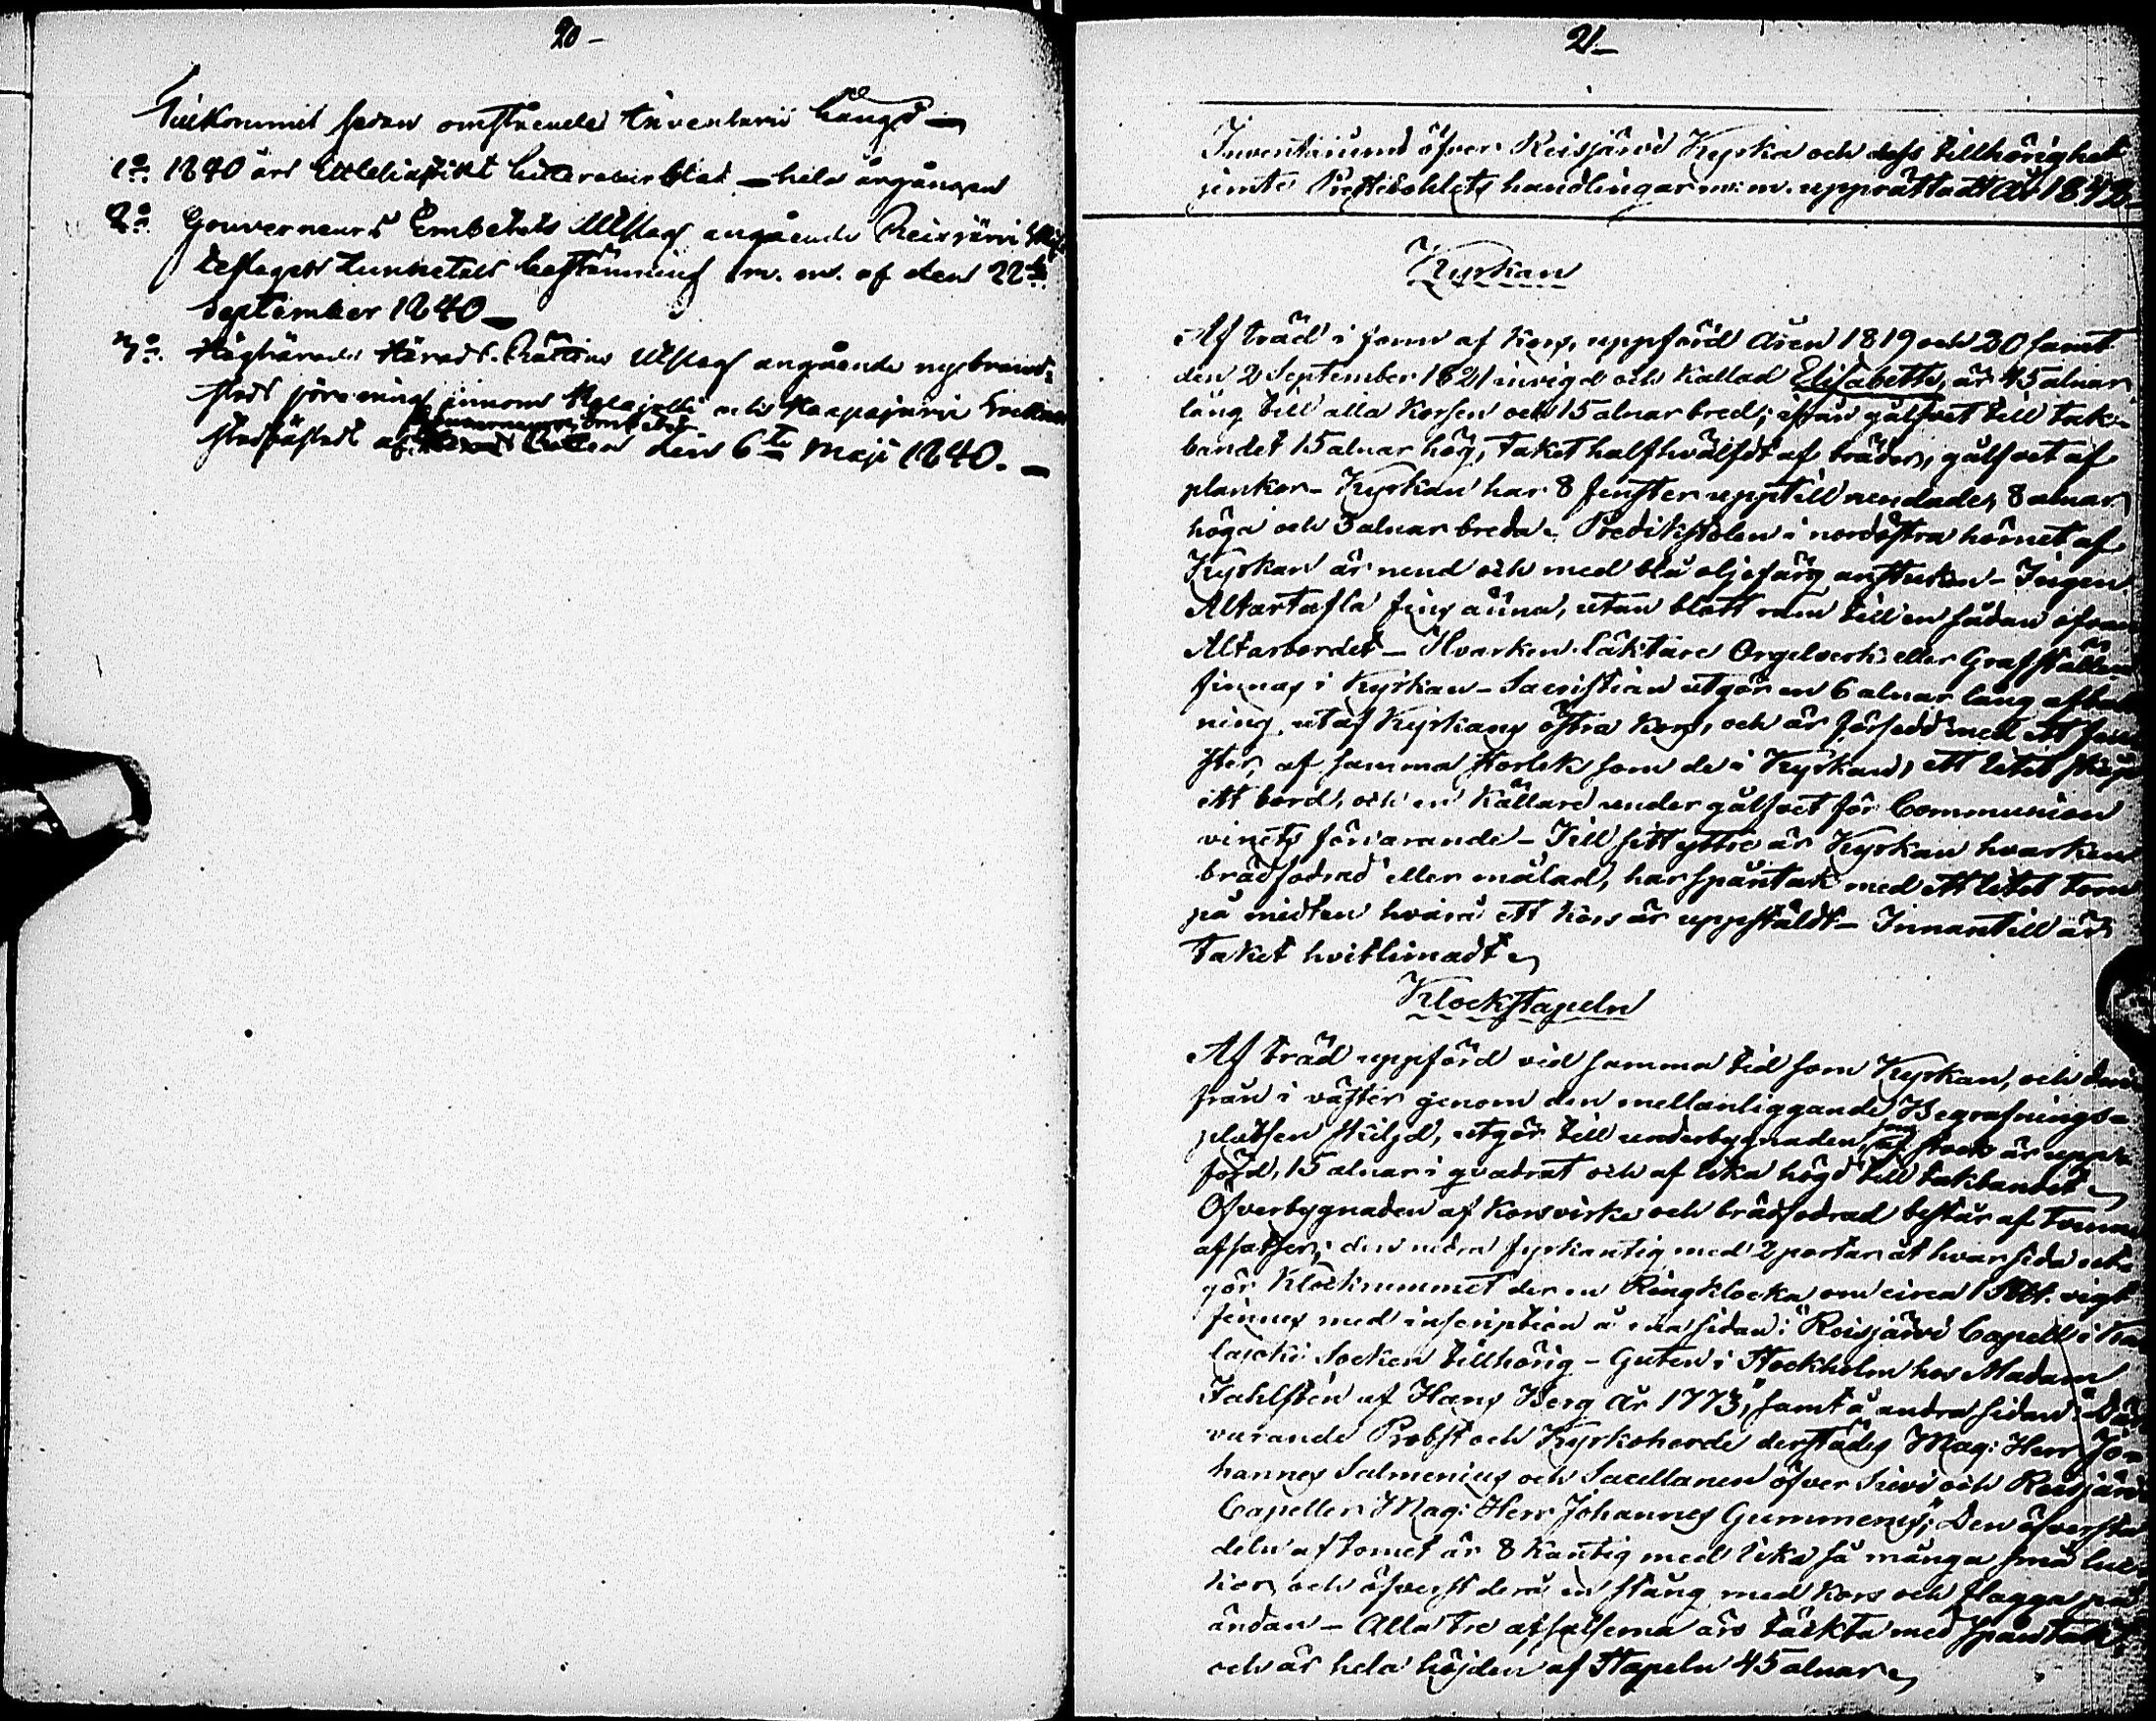 20 –
Tillkommit sedan omstående Inventarii längd –
1o. 1840 års Ecclesiastikt Litteratur blad – hela årgången
2o. Gouverneurs Embetets Utslag angående Reisjärvi
testaget tunnetals bestämning m. m. af den 22dra
September 1840 –
3o. Häradts Rättens Utslag angående nybrand-
innom och Haapajärvi Socknar
stadfästadt af Gouverneurs Embetet den 6te Maji 1840. –
21 –
Inventarium öfver Reisjärvi Kyrka och dess tillhörighet
jemte Prestebohlets handlingar m: m. upprättadt År 1842 –
Kyrkan
Af träd i form af kors, uppförd Åren 1819 och 20 samt
den 2 September 1821 invigd och kallad Elisabeth, är 45 alnar
lång till alla Korsen och 15 alnar bred; ifrån gålfvet till tak-
bandet 15 alnar hög, taket half hvälfdt af bräder, gålfvet af
plankor – Kyrkan har 8 fenster upptill rundade, 8 alnar
höga och 3 alnar breda – Predikstolen i nordöstra hörnet af
Kyrkan är rund och med blå oljefärg anstruken – Ingen
Altartafla fins ännu, utan blott ram till en sådan ofvan
Altarbordet – Hvarken Läktare Orgelverk eller Grafställen
finnas i Kyrkan – Sacristian utgör en 6 alnar lång afbal
ning utaf Kyrkans östra kors, och är försedd med ett fen
ster, af samma storlek som de i Kyrkan, ett litet skåp
ett bord, och en Källare under gålfvet för Communion
vinets förvarande – Till sitt yttre är Kyrkan hvarken
brädfodrad eller målad, har spåntak med ett litet torn
på midten hvarå ett kors är uppstäldt – Innantill är
taket hvitlimadt –
Klockstapeln
Af träd uppförd vid samma tid som Kyrkan, och deri
från i väster genom den mellanliggande Begrafnings-
platsen skiljd, utgör till underbygnaden, som af stock är upp-
förd, 15 alnar i qvadrat och af lika högd till takbandet –
Öfverbygnaden af korsvirke och brädfodrad består af tvenne
afsatser; den nedra fyrkantig med 2 portar åt hvar sida ut-
gör Klockrummet der en Ringklocka om circa 1 vigt
finnes med inscription å ena sidan: "Reisjärvi Capell i Ka
lajoki Socken tillhörig – Guten i Stockholm hos Madam
Fahlstén af Hans Berg År 1773," samt å andra sidan: "Då
varande Probst och Kyrkoherde derstädes Mag: Herr Jo-
hannes Salmenius och Sacellanen öfver Sievi och Reisjärvi
Capeller Mag: Herr Johannes Gummerus"; Den öfversta
deln af tornet är 8 kantig med lika så många små luc-
kor och öfverst derå en stång med kors och flagga på
ändan – Alla tre afsatserna äro täckta med spåntak
och är hela höjden af Stapeln 45 alnar –